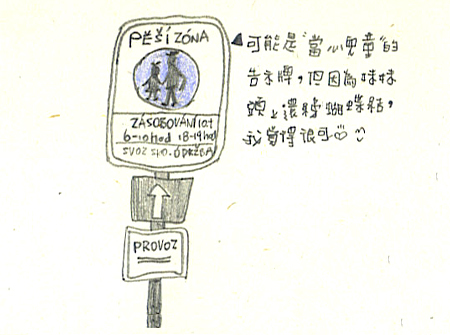 PĚŠÍ ZÓNA
ZÁSOBOVÁNÍ 10t
6-10hod 18-19hod
SVOZ
ÚDRŽBA
PROVOZ
可能是"當心兒童"的
告示牌,但因為妹妹
頭上還綁蝴蝶結,
我覺得很可